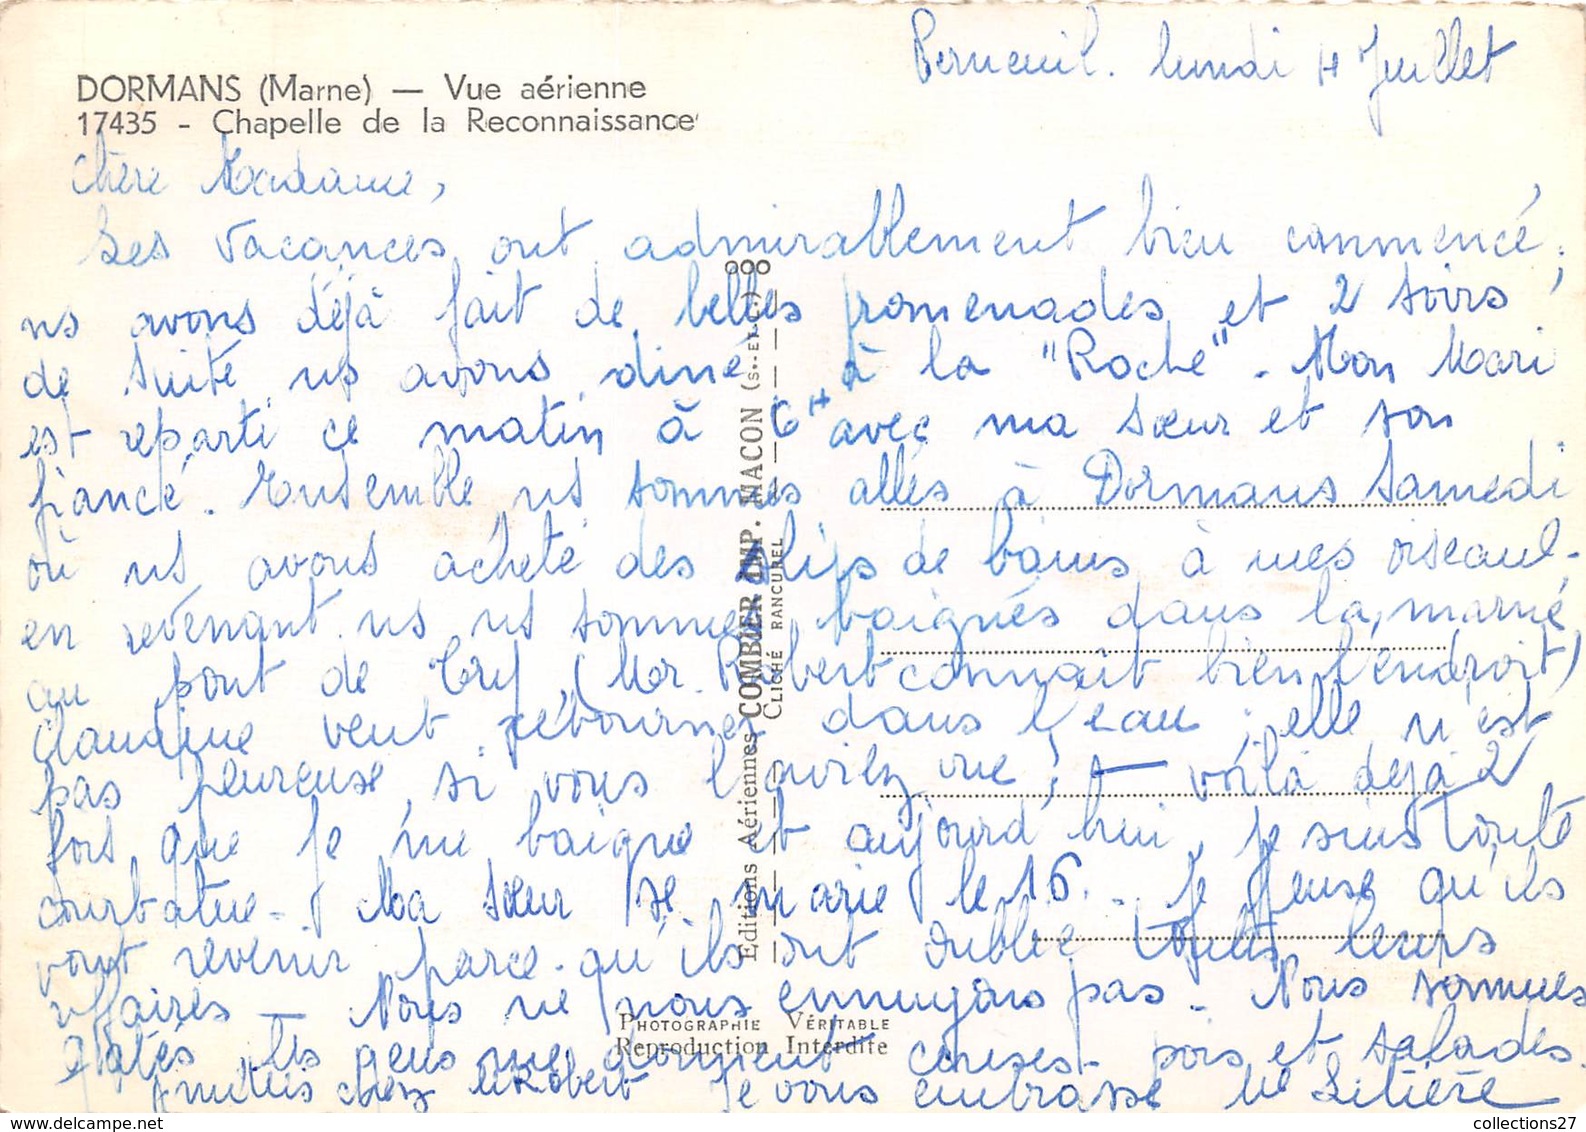 Verneuil. lundi 4 Juillet
DORMANS (Marne) — Vue aérienne
17435 - Chapelle de la Reconnaissance
Chère Madame,
Les vacances ont admirablement bien commencé;
ns avons déjà fait de belles promenades et 2 soirs
de suite ns avons diné à la "Roche". Mon Mari
est reparti ce matin à 6H avec ma sœur et son
fiancé. Ensemble ns sommes allés à Dormans Samedi
où ns avons acheté des slips de bains à mes oiseaux-
en revenant ns ns sommes baignés dans la marne
au pont de Try (Mr. Robert connait bien l'endroit)
Claudine veut retourner dans l'eau, elle n'est
pas peureuse, si vous l'aviez vue; voilà déjà 2
fois que je me baigne et aujourd'hui je suis toute
courbatue - Ma sœur se marie le 16. - Je pense qu'ils
vont revenir parce-qu'ils ont oublié toutes leurs
affaires - Nous ne nous ennuyons pas - Nous sommes
gâtés, les gens me donnent cerises - pois et salades.
Amitiés chez Mr Robert Je vous embrasse
Editions Aériennes COMBIER IMP. MACON (S.-ET-L.)
CLICHÉ RANCUREL
PHOTOGRAPHIE VÉRITABLE
Reproduction Interdite
collections27